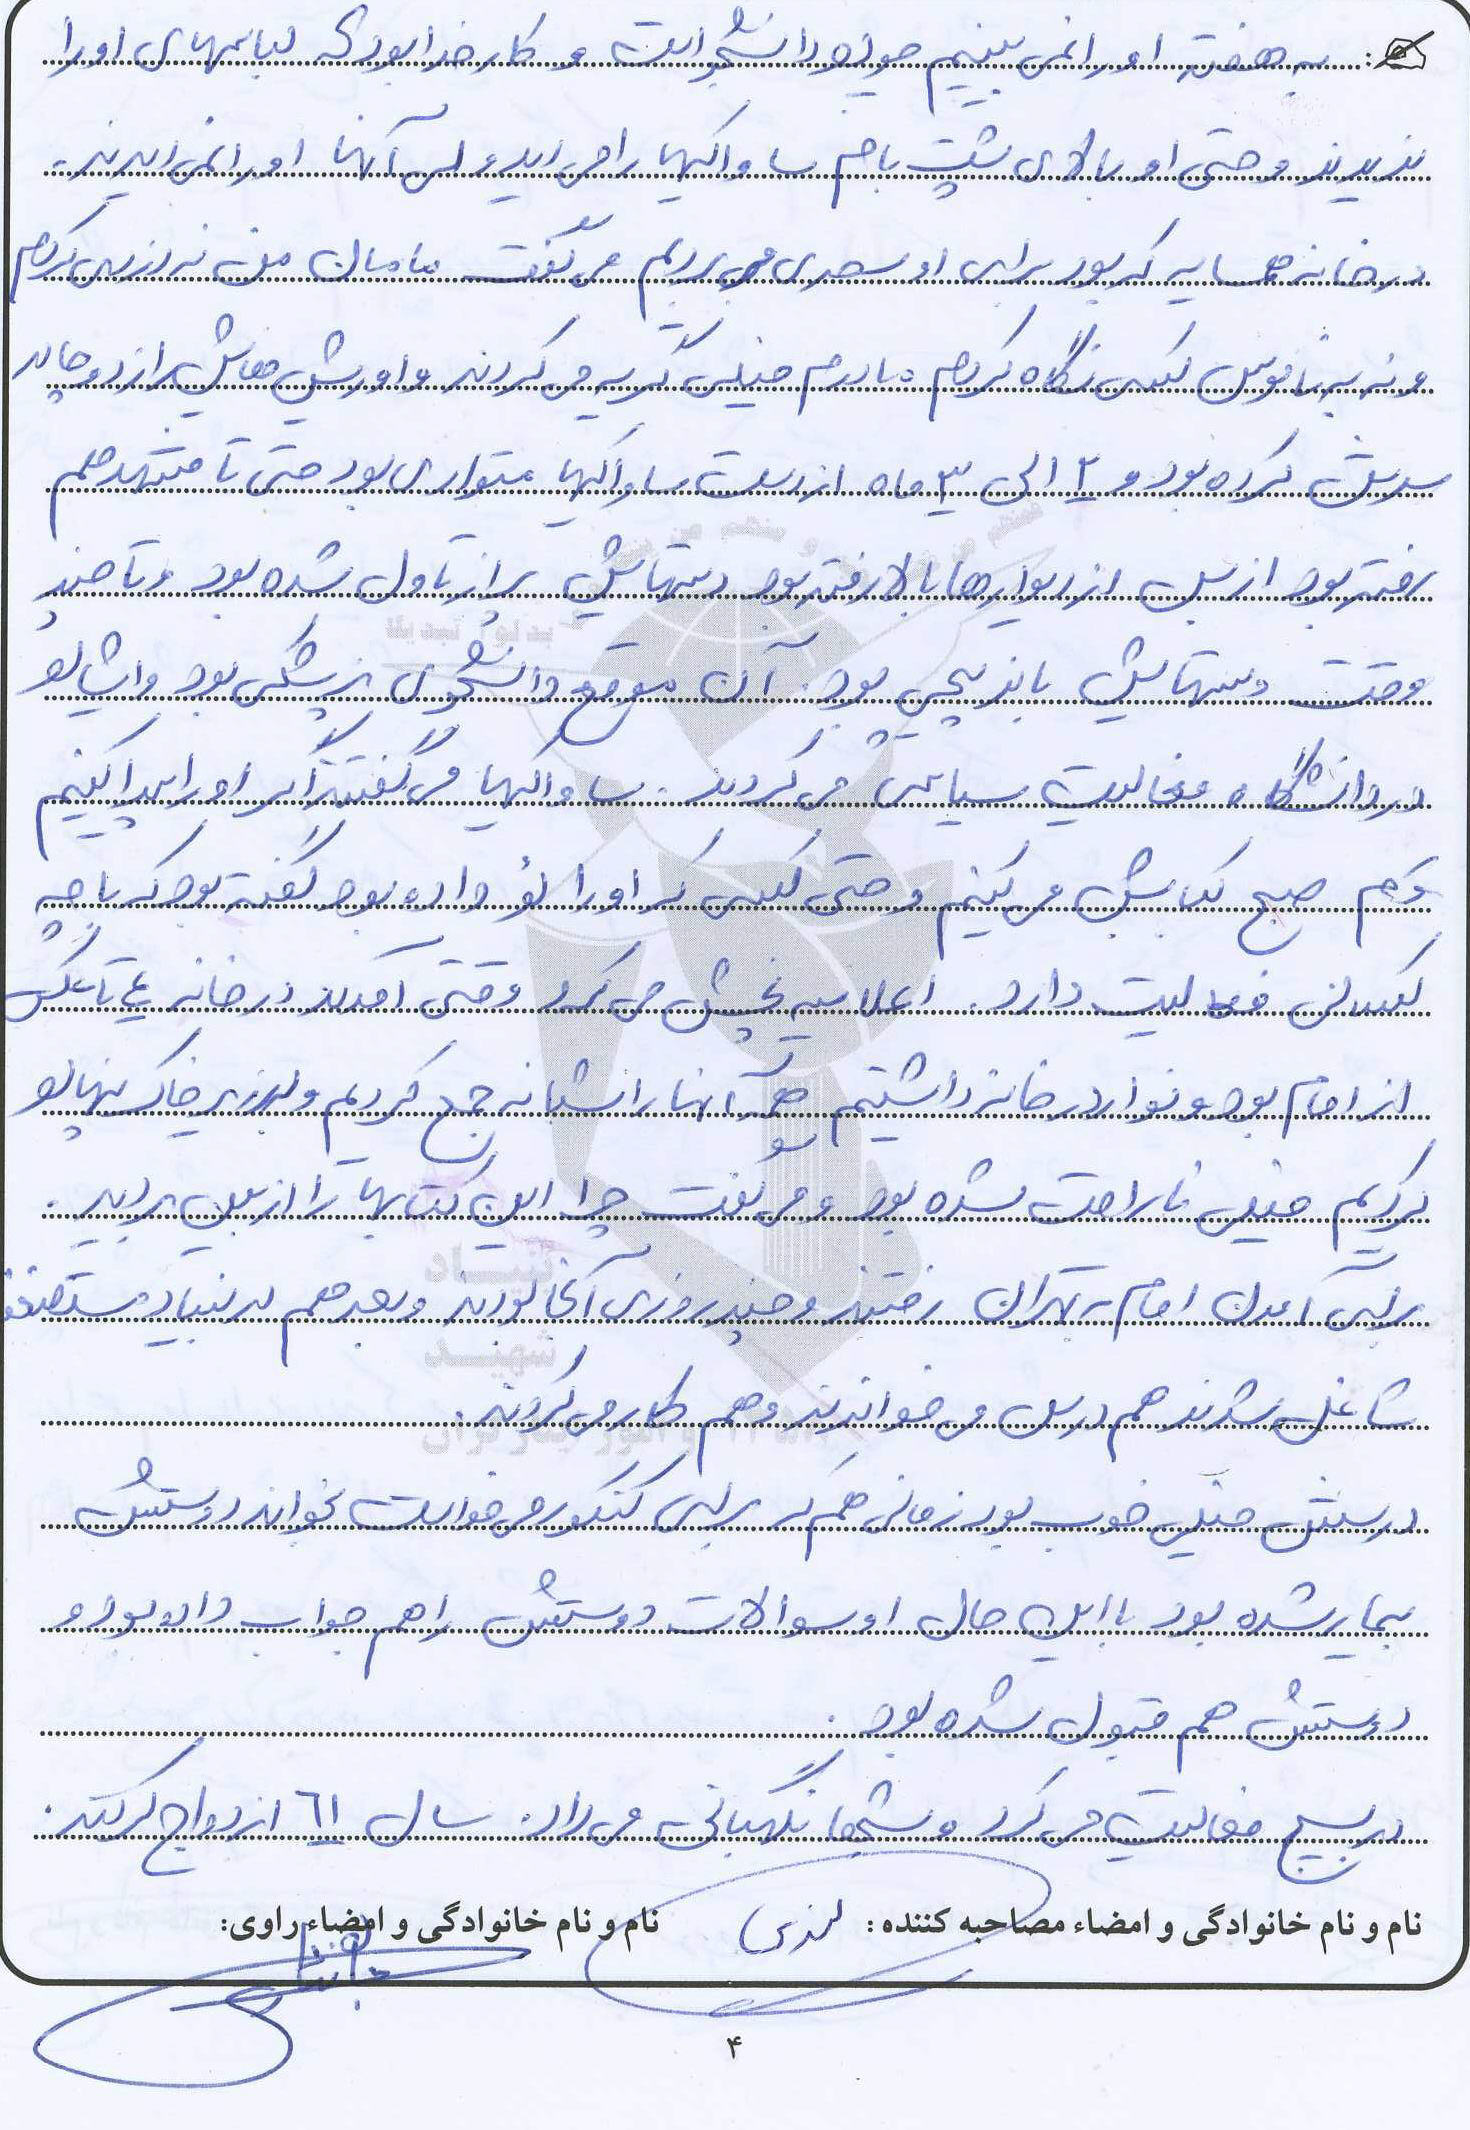 به هفته او را نمی بینیم چون او دانشجو است و کار خدا بود که لباسهای او را
ندیدند و حتی او بالای پشت بام ساواکیها را می دید ولی آنها او را نمی دیدند.
در خانه همسایه که بود برای او سحری می بردیم می گفت مامان من نه دزدی کردم
و نه به ناموس کسی نگاه کردم مادرم خیلی گریه می کردند و او ریش هایش را از دو جای
سرش کرده بود و ۲ الی ۳ ماه از دست ساواکیها متواری بود حتی تا مشهد هم
رفته بود از بس از دیوارها بالا رفته بود دستهایش پر از تاول شده بود و تا چند
وقت دستهایش باندپیچی بود. آن موقع دانشجوی پزشکی بود و ایشان
در دانشگاه فعالیت سیاسی می کردند. ساواکیها می گفتند اگر او را پیدا کنیم
دم صبح کبابش می کنیم و حتی کسی که او را لو داده بود گفته بود که با چه
کسانی فعالیت دارد. اعلامیه پخش می کرد وقتی آمدند در خانه ۴ تا عکس
از امام بود و نوار در خانه داشتیم همه آنها را شبانه جمع کردیم و در زیر خاک پنهان
کردیم خیلی ناراحت شده بود و می گفت چرا این کتابها را از بین بردید.
برای آمدن امام به تهران رفتند و چند روزی آنجا بودند و بعد هم در بنیاد مستضعفین
شاغل شدند هم درس می خواندند و هم کار می کردند.
درسش خیلی خوب بود زمانی هم که برای کنکور می خواست بخواند دوستش
بیمار شده بود با این حال او سوالات دوستش را هم جواب داده بود و
دوستش هم قبول شده بود.
در بسیج فعالیت می کرد و شبها نگهبانی می داد. سال ۶۱ ازدواج کردند.
نام و نام خانوادگی و امضاء مصاحبه کننده: نام و نام خانوادگی و امضاء راوی:
۴